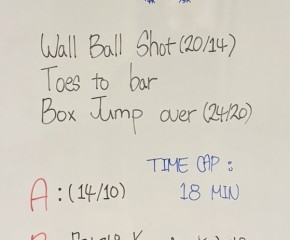 Wall Ball Shot (20/14)
Toes to bar
Box Jump over (24/20)
TIME CAP :
A : (14/10) 18 MIN